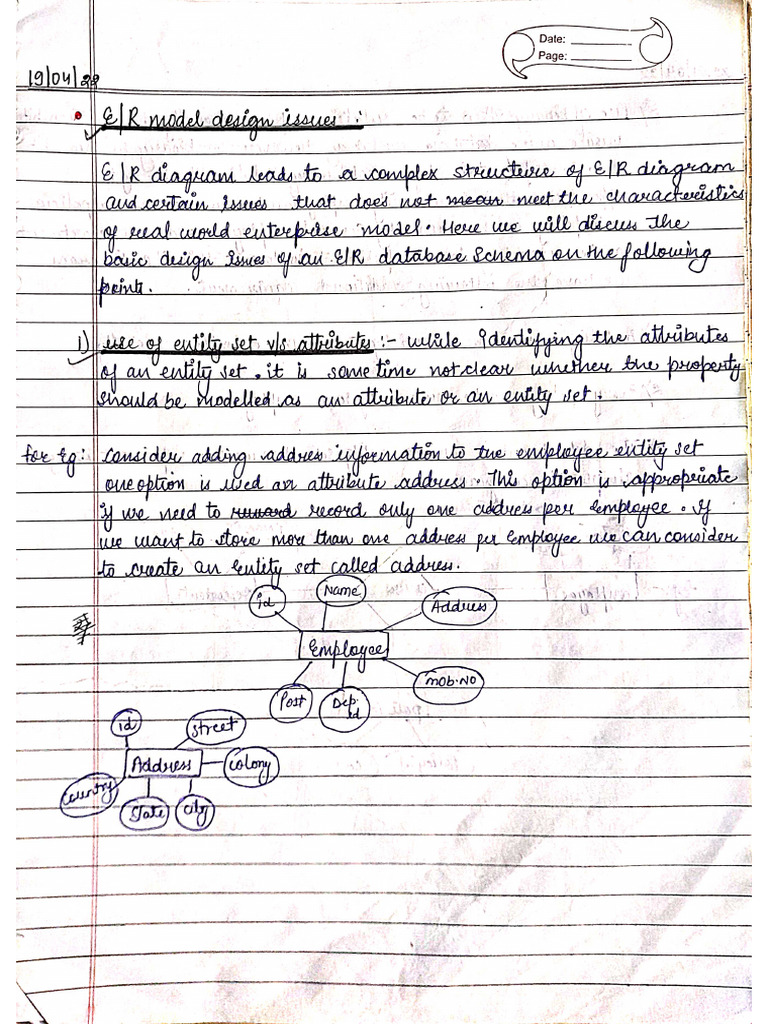 Date:
Page:
19/04/22
E/R model design issues :
E/R diagram leads to a complex structure of E/R diagram
and certain issues that does not mean meet the characteristics
of real world enterprise model. Here we will discuss the
basic design issues of an E/R database schema on the following
point.
i) use of entity set v/s attributes :- while identifying the attributes
of an entity set, it is some time not clear whether the property
should be modelled as an attribute or an entity set.
for Eg: Consider adding address information to the employee entity set
one option is used an attribute address. This option is appropriate
if we need to record only one address per employee. If
we want to store more than one address per Employee we can consider
to create an entity set called address.
id Name Address
Employee
Post Dep. id mob.NO
id street
Address colony
country state city